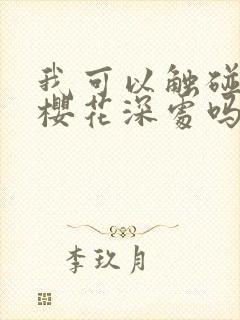 我可以触碰
樱花深处吗
李玖月